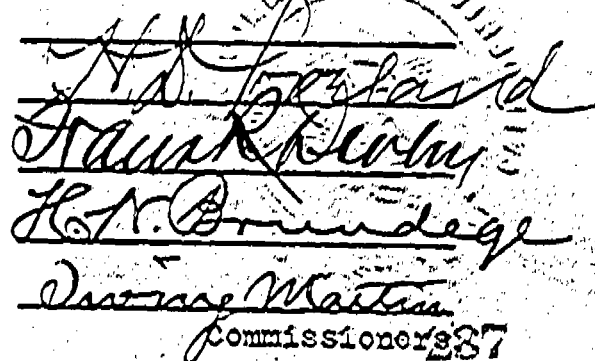 H. D. Loveland
Frank R Devlin
H. N. Brundege
Irving Martin
Commissioners
287